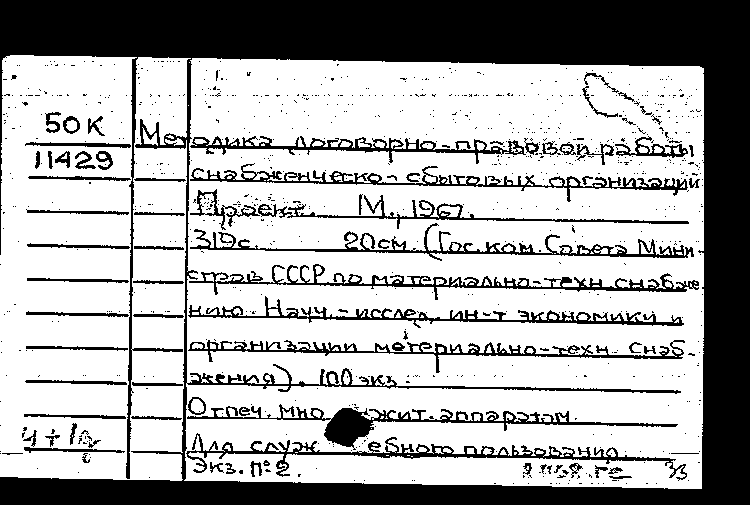 50К
11429
Методика договорно-правовой работы
снабженческо-сбытовых организаций
Проект. М., 1967.
319с. 20см. (Гос. ком. Совета Мини-
стров СССР по материально-техн. снабже-
нию. Науч.-исслед. ин-т экономики и
организации материально-техн. снаб-
жения). 100 экз.
Отпеч. множит. аппаратом.
Для служебного пользования.
Экз. №2.
33